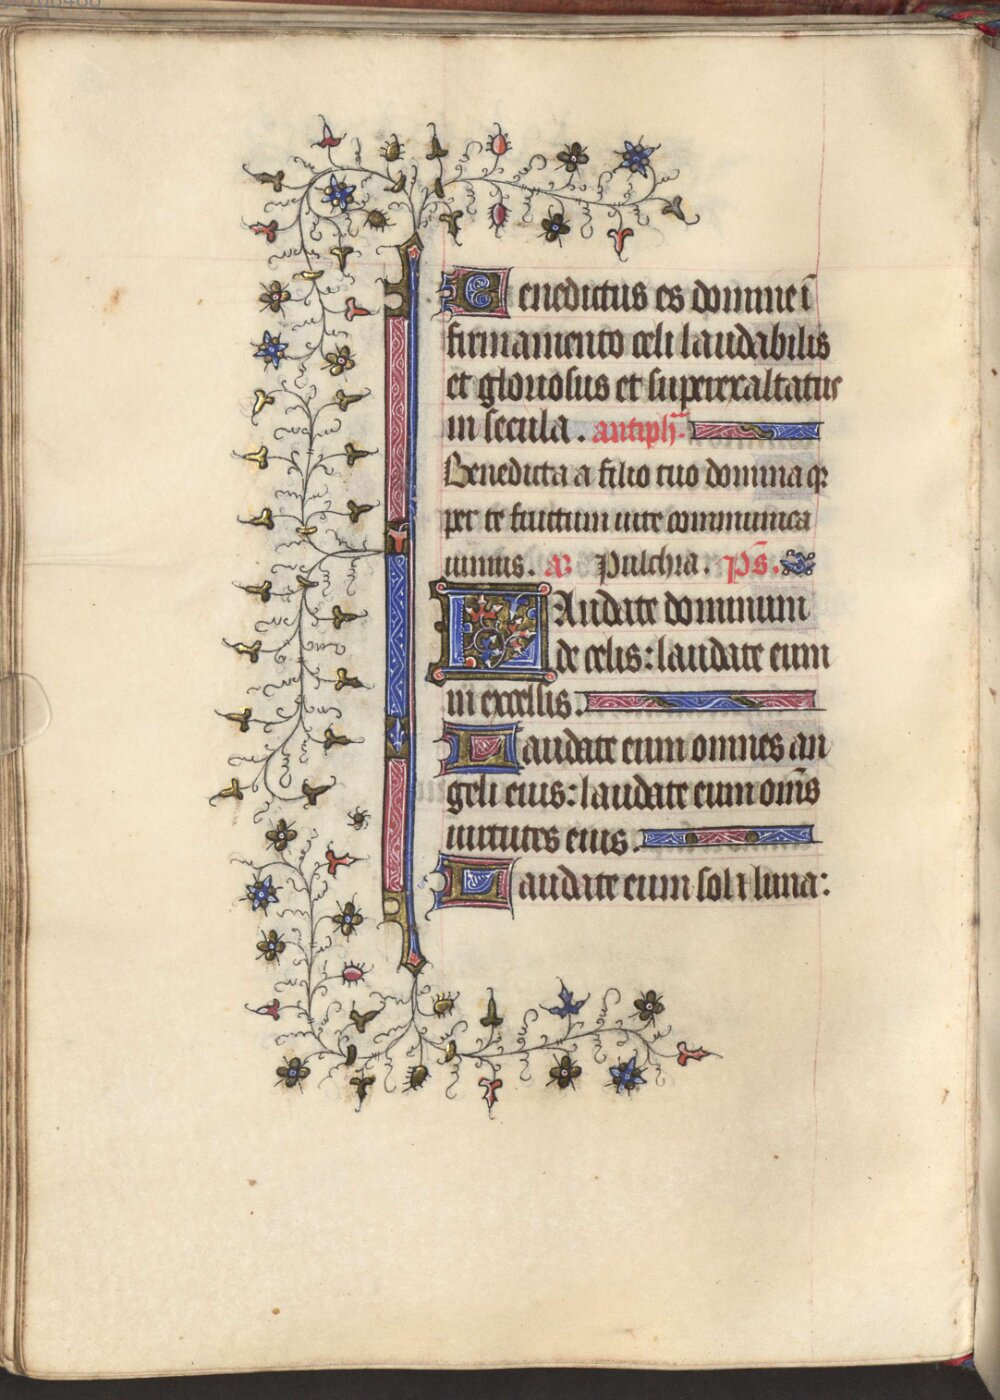 Benedictus es domine ī
firmamento celi laudabilis
et gloriosus et superexaltatus
in secula. antiph.
Benedicta a filio tuo domina qr
per te fructum uite communica
uimus. a Pulchra. ps.
LAudate dominum
de celis: laudate eum
in excelsis.
Laudate eum omnes an
geli eius: laudate eum om̄s
uirtutes eius.
Laudate eum sol ⁊ luna: